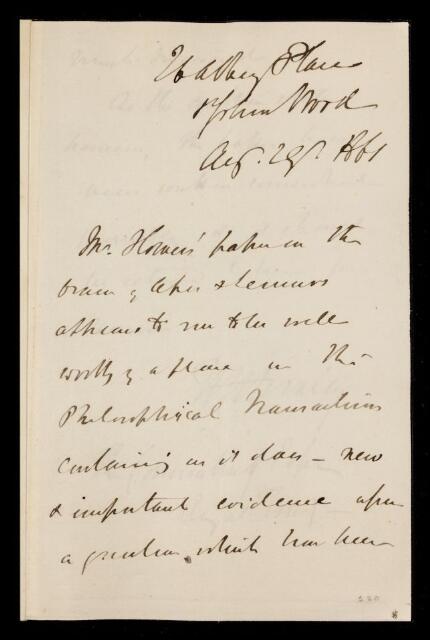 26 Abbey Place
St John's Wood
Aug. 29th 1861
Mr. Flower's paper on the
brain of Apes & Lemurs
appears to me to be well
worthy of a place in the
Philosophical Transactions
containing as it does – new
& important evidence upon
a question, which has been